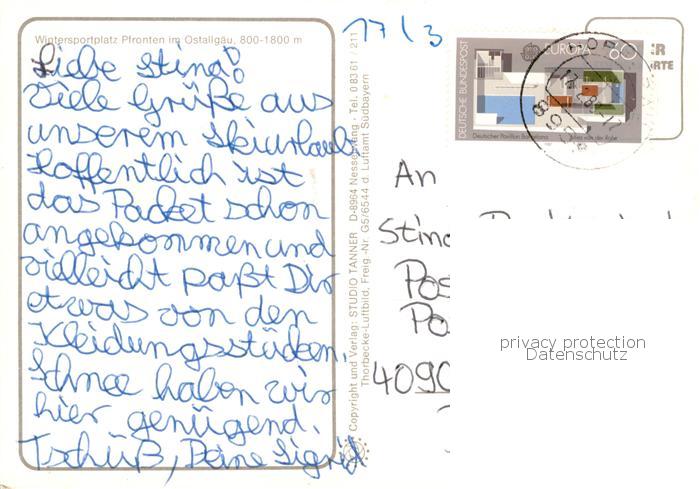 Wintersportplatz Pfronten im Ostallgäu, 800-1800 m
Liebe Stina!
Viele Grüße aus
unserem Skiurlaub.
Hoffentlich ist
das Packet schon
angekommen und
vielleicht paßt Dir
etwas von den
Kleidungsstücken.
Schnee haben wir
hier genügend.
Tschüß, Deine Sigrid
Copyright und Verlag: STUDIO TANNER D-8964 Nesselwang · Tel. 0 83 61 / 211
Thorbecke-Luftbild, Freig.-Nr. G5/6544 d. Luftamt Südbayern
17/3
DEUTSCHE BUNDESPOST
EUROPA 60
Deutscher Pavillon Barcelona
Mies van der Rohe
An
Stina
Pos
Po
4090
privacy protection
Datenschutz